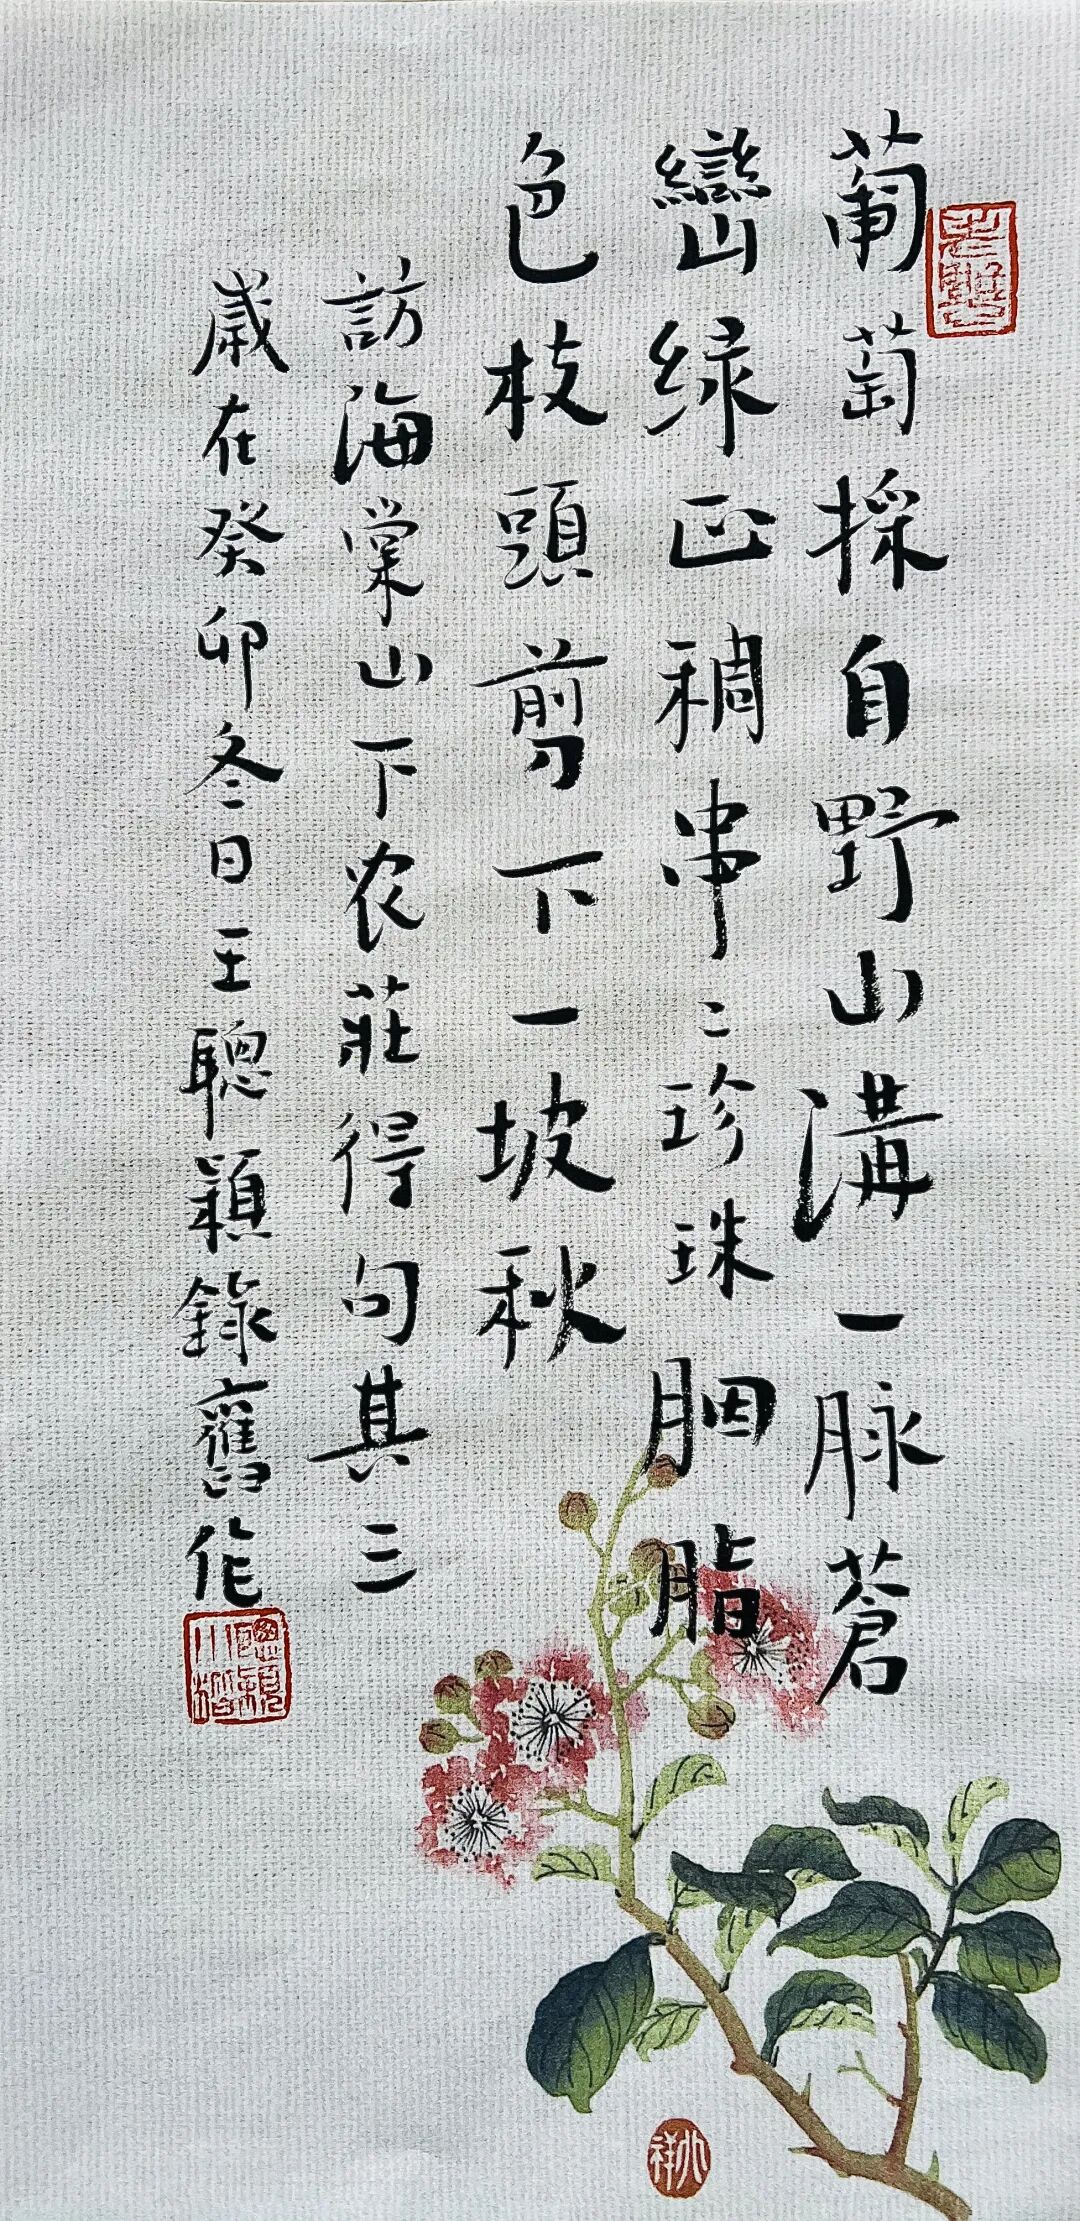 葡萄採自野山溝一脉蒼
巒绿正稠串〻珍珠胭脂
色枝頭剪下一坡秋
訪海棠山下农莊得句其三
歲在癸卯冬日王聰穎錄舊作